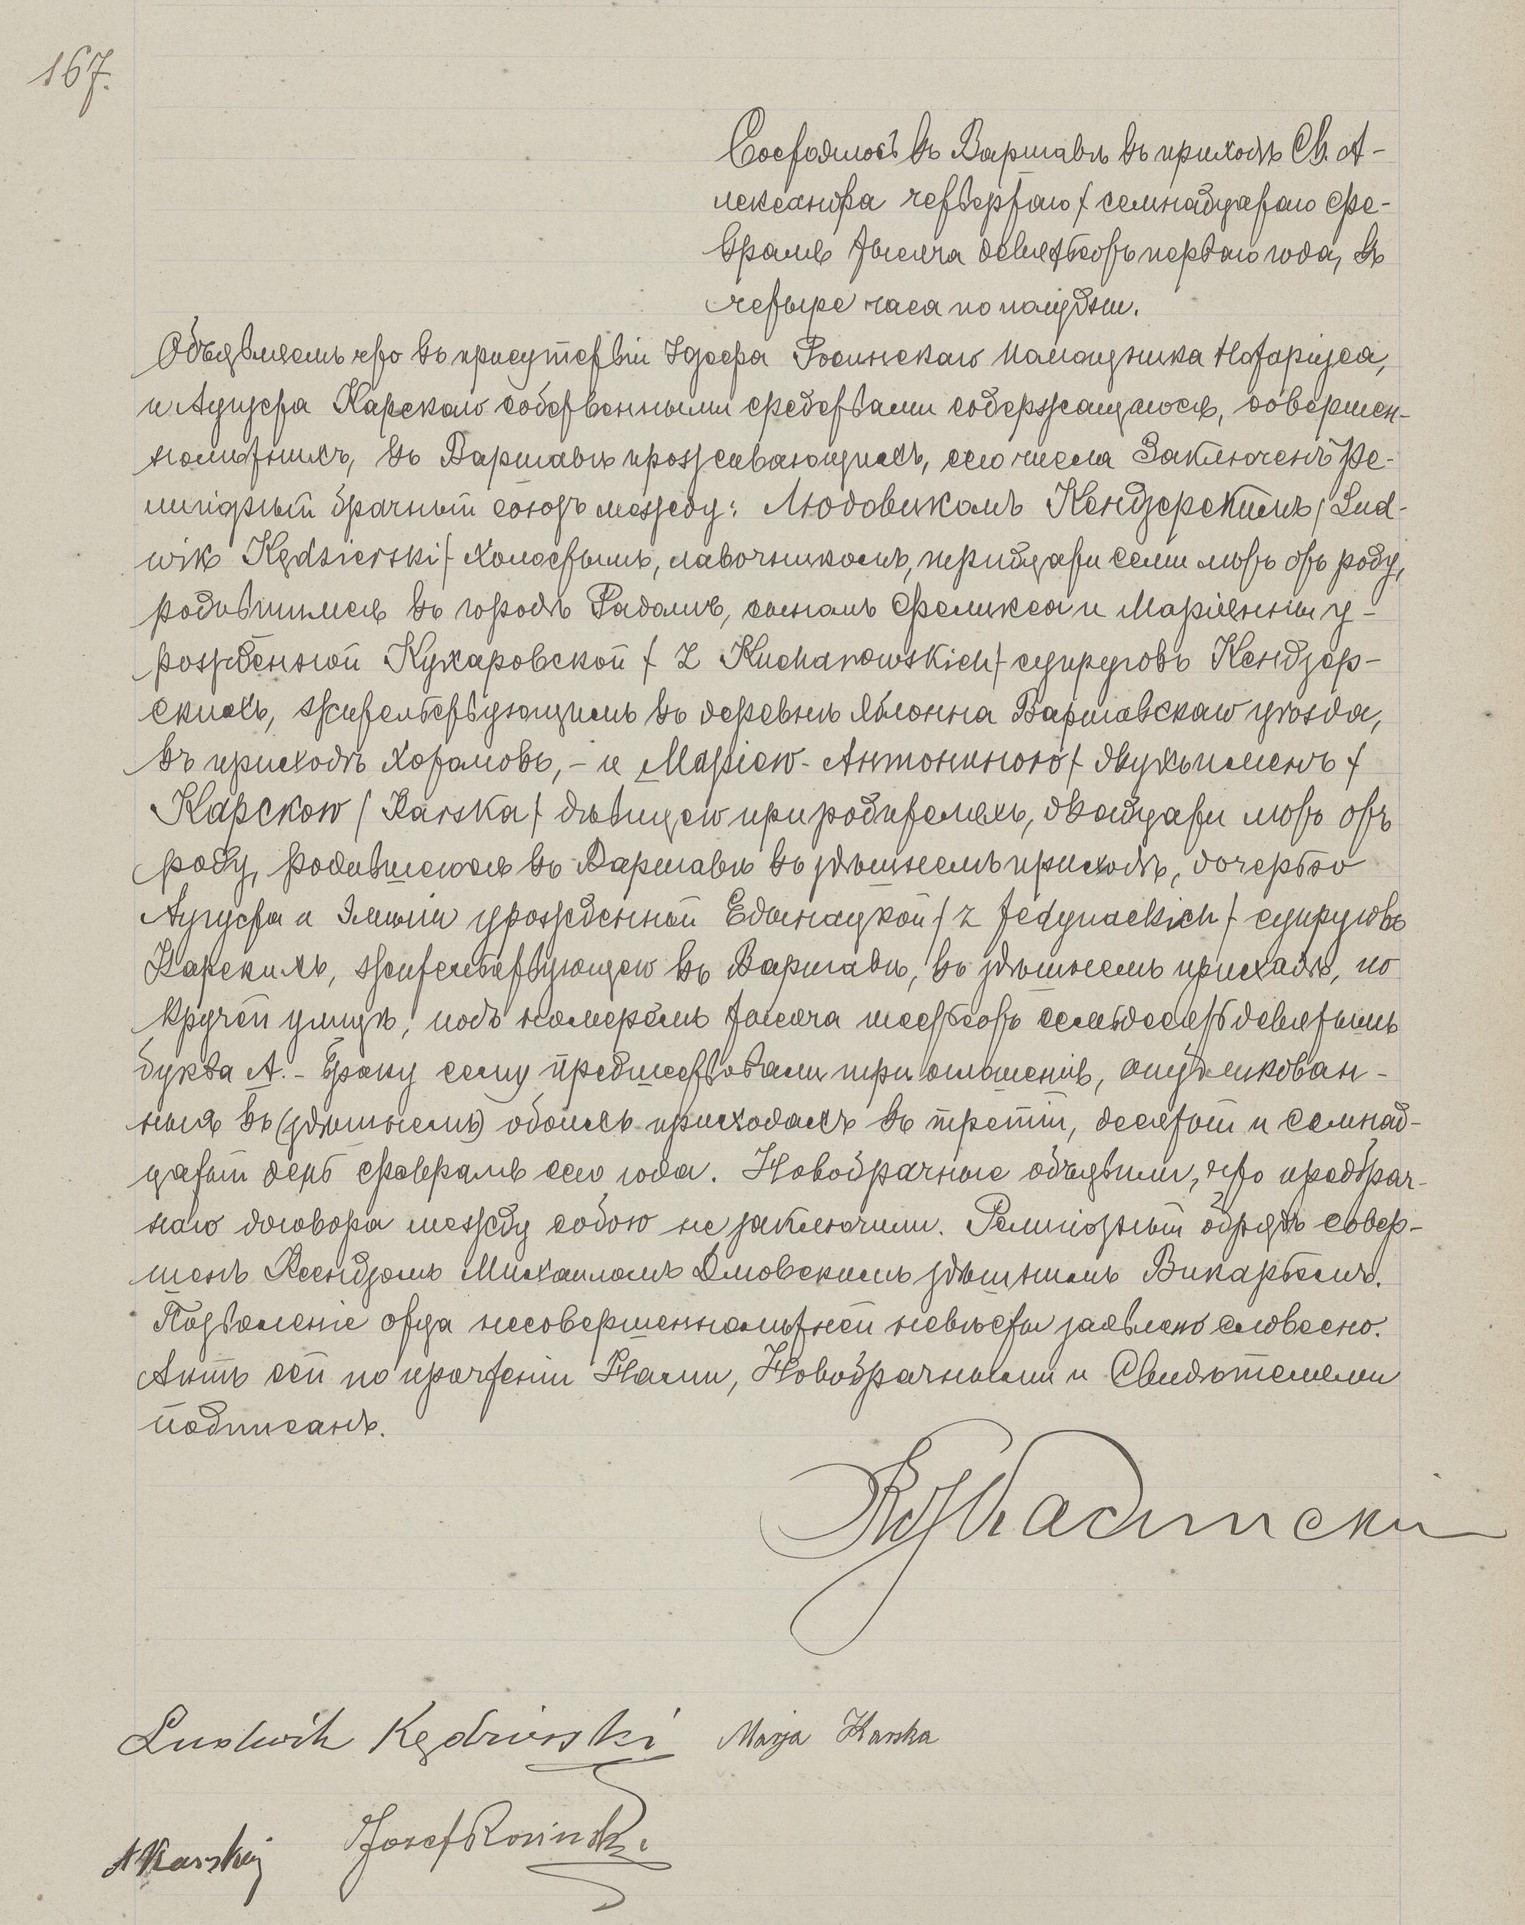 167.
Состоялось въ Варшавѣ въ приходѣ Св. А-
лександра четвертаго / семнадцатаго Фе-
враля тысяча девятьсотъ перваго года, въ
четыре часа по полудни.
Объявляемъ что въ присутствіи Іосифа Росинскаго помощника Нотаріуса,
и Августа Карскаго собственными средствами содержащагося, совершен-
нолѣтнихъ, въ Варшавѣ проживающихъ, сего числа заключенъ Ре-
лигіозный брачный союзъ между: Людовикомъ Кендзерскимъ / Lud-
wik Kędzierski / холостымъ, лавочникомъ, тридцати семи лѣтъ отъ роду,
родившимся въ городѣ Радомѣ, сыномъ Феликса и Маріянны у-
рожденной Кухаровской / z Kucharowskich / супруговъ Кендзер-
скихъ, жительствующимъ въ деревнѣ Яблонна Варшавскаго уѣзда,
въ приходѣ Хотомовъ, - и Маріею - Антониною / двухъименъ /
Карскою / Karska / дѣвицею при родителяхъ, двадцати лѣтъ отъ
роду, родившеюся въ Варшавѣ въ здѣшнемъ приходѣ, дочерью
Августа и Эмиліи урожденной Едынацкой / z Jedynackich / супруговъ
Карскихъ, жительствующею въ Варшавѣ, въ здѣшнемъ приходѣ, по
Кручей улицѣ, подъ номеромъ тысяча шестьсотъ семьдесятъ девятымъ
буква А. - Браку сему предшествовали три оглашенія, опубликован-
ныя въ (здѣшнемъ) обоихъ приходахъ въ третій, десятый и семнад-
цатый день февраля сего года. Новобрачные объявили, что предбрач-
наго договора между собою не заключили. Религіозный обрядъ совер-
шенъ Ксендзомъ Михаиломъ Дмовскимъ здѣшнимъ Викаріемъ.
Позволеніе отца несовершеннолѣтней невѣсты заявлено словесно.
Актъ сей по прочтеніи Нами, Новобрачными и Свидѣтелями
подписанъ.
Ludwik Kędzierski Marja Karska
A Karski Józef Rosiński